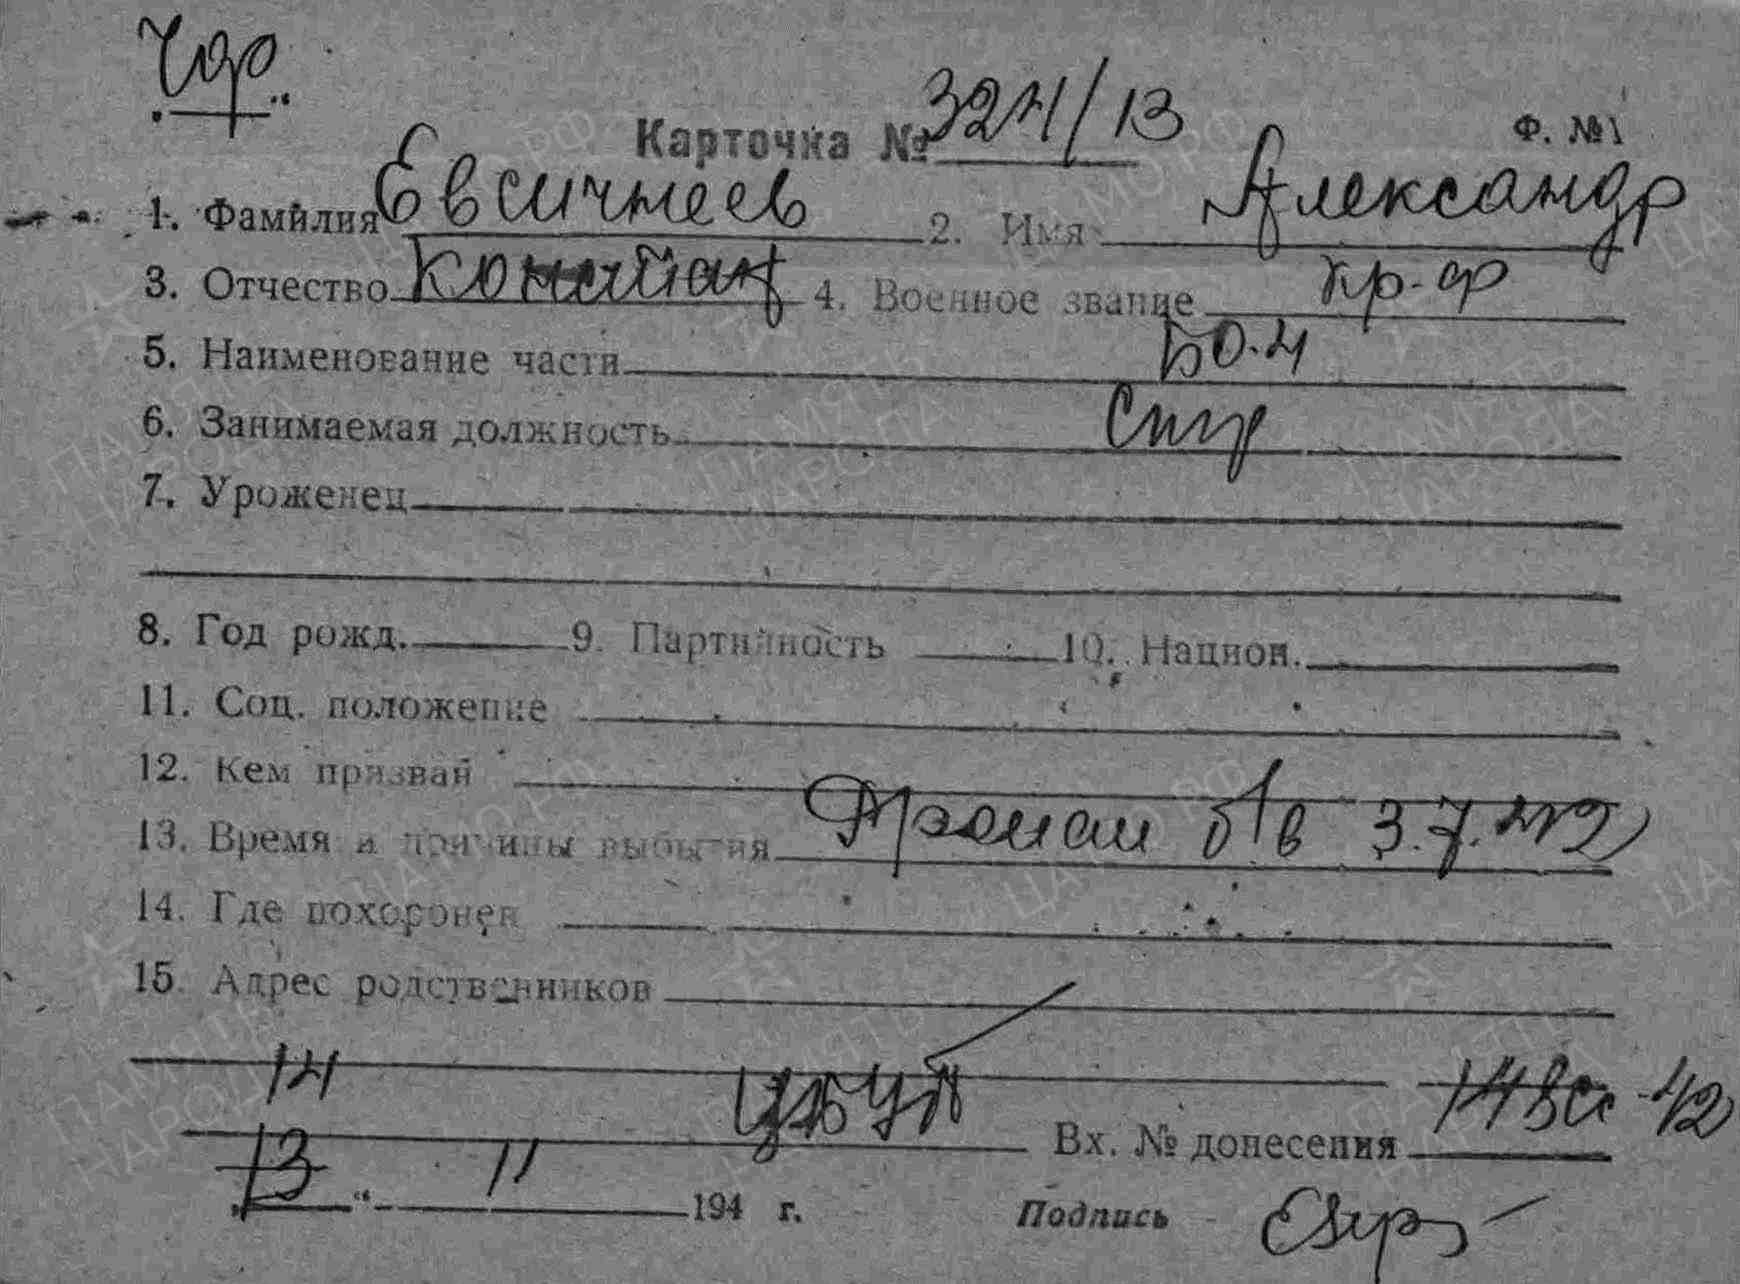 Карточка № 324/13 Ф. №1
1. Фамилия Евсичнеев 2. Имя Александр
3. Отчество 4. Военное звание кр-ф
5. Наименование части БО.4
6. Занимаемая должность Стр
7. Уроженец
8. Год рожд. 9. Партийность 10. Национ.
11. Соц. положение
12. Кем призван
13. Время и причины выбытия Пропал б/в 3.7.42
14. Где похоронен
15. Адрес родственников
14
Вх. № донесения 42
13 11 194 г. Подпись